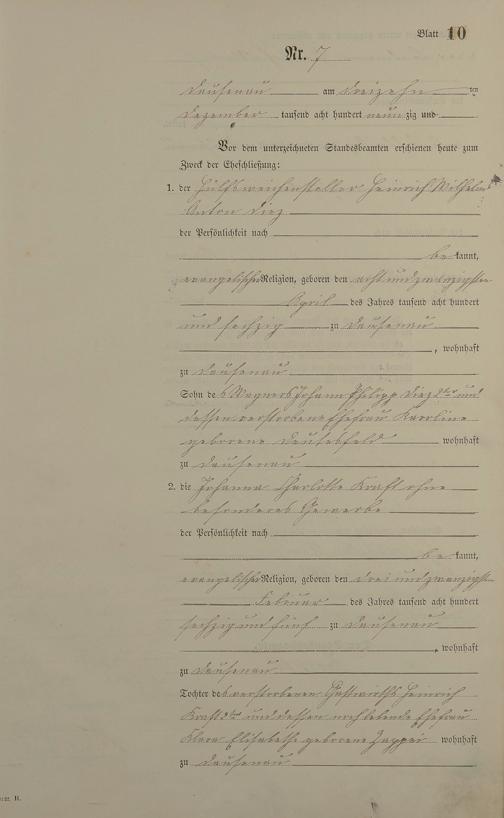 Blatt 10
Nr. 7
Dausenau am dreizehn ten
Dezember tausend acht hundert neun zig und
Vor dem unterzeichneten Standesbeamten erschienen heute zum
Zweck der Eheschließung:
1. der Hülfsweichensteller Heinrich Wilhelm
Anton Diez
der Persönlichkeit nach
be kannt,
evangelischer Religion, geboren den acht und zwanzigsten
April des Jahres tausend acht hundert
und sechzig zu Dausenau
, wohnhaft
zu Dausenau
Sohn des Wagners Johann Philipp Diez 2ter und
dessen verstorbene Ehefrau Karoline
geborene wohnhaft
zu Dausenau
2. die Johanna Charlotte Kraft ohne
besonderes Gewerbe
der Persönlichkeit nach
be kannt,
evangelischer Religion, geboren den drei und zwanzigsten
Februar des Jahres tausend acht hundert
sechzig und fünf zu Dausenau
, wohnhaft
zu Dausenau
Tochter des verstorbenen Gastwirths Heinrich
Kraft 3ter und dessen noch lebende Ehefrau
Klara Elisabethe geborene wohnhaft
zu Dausenau
B.